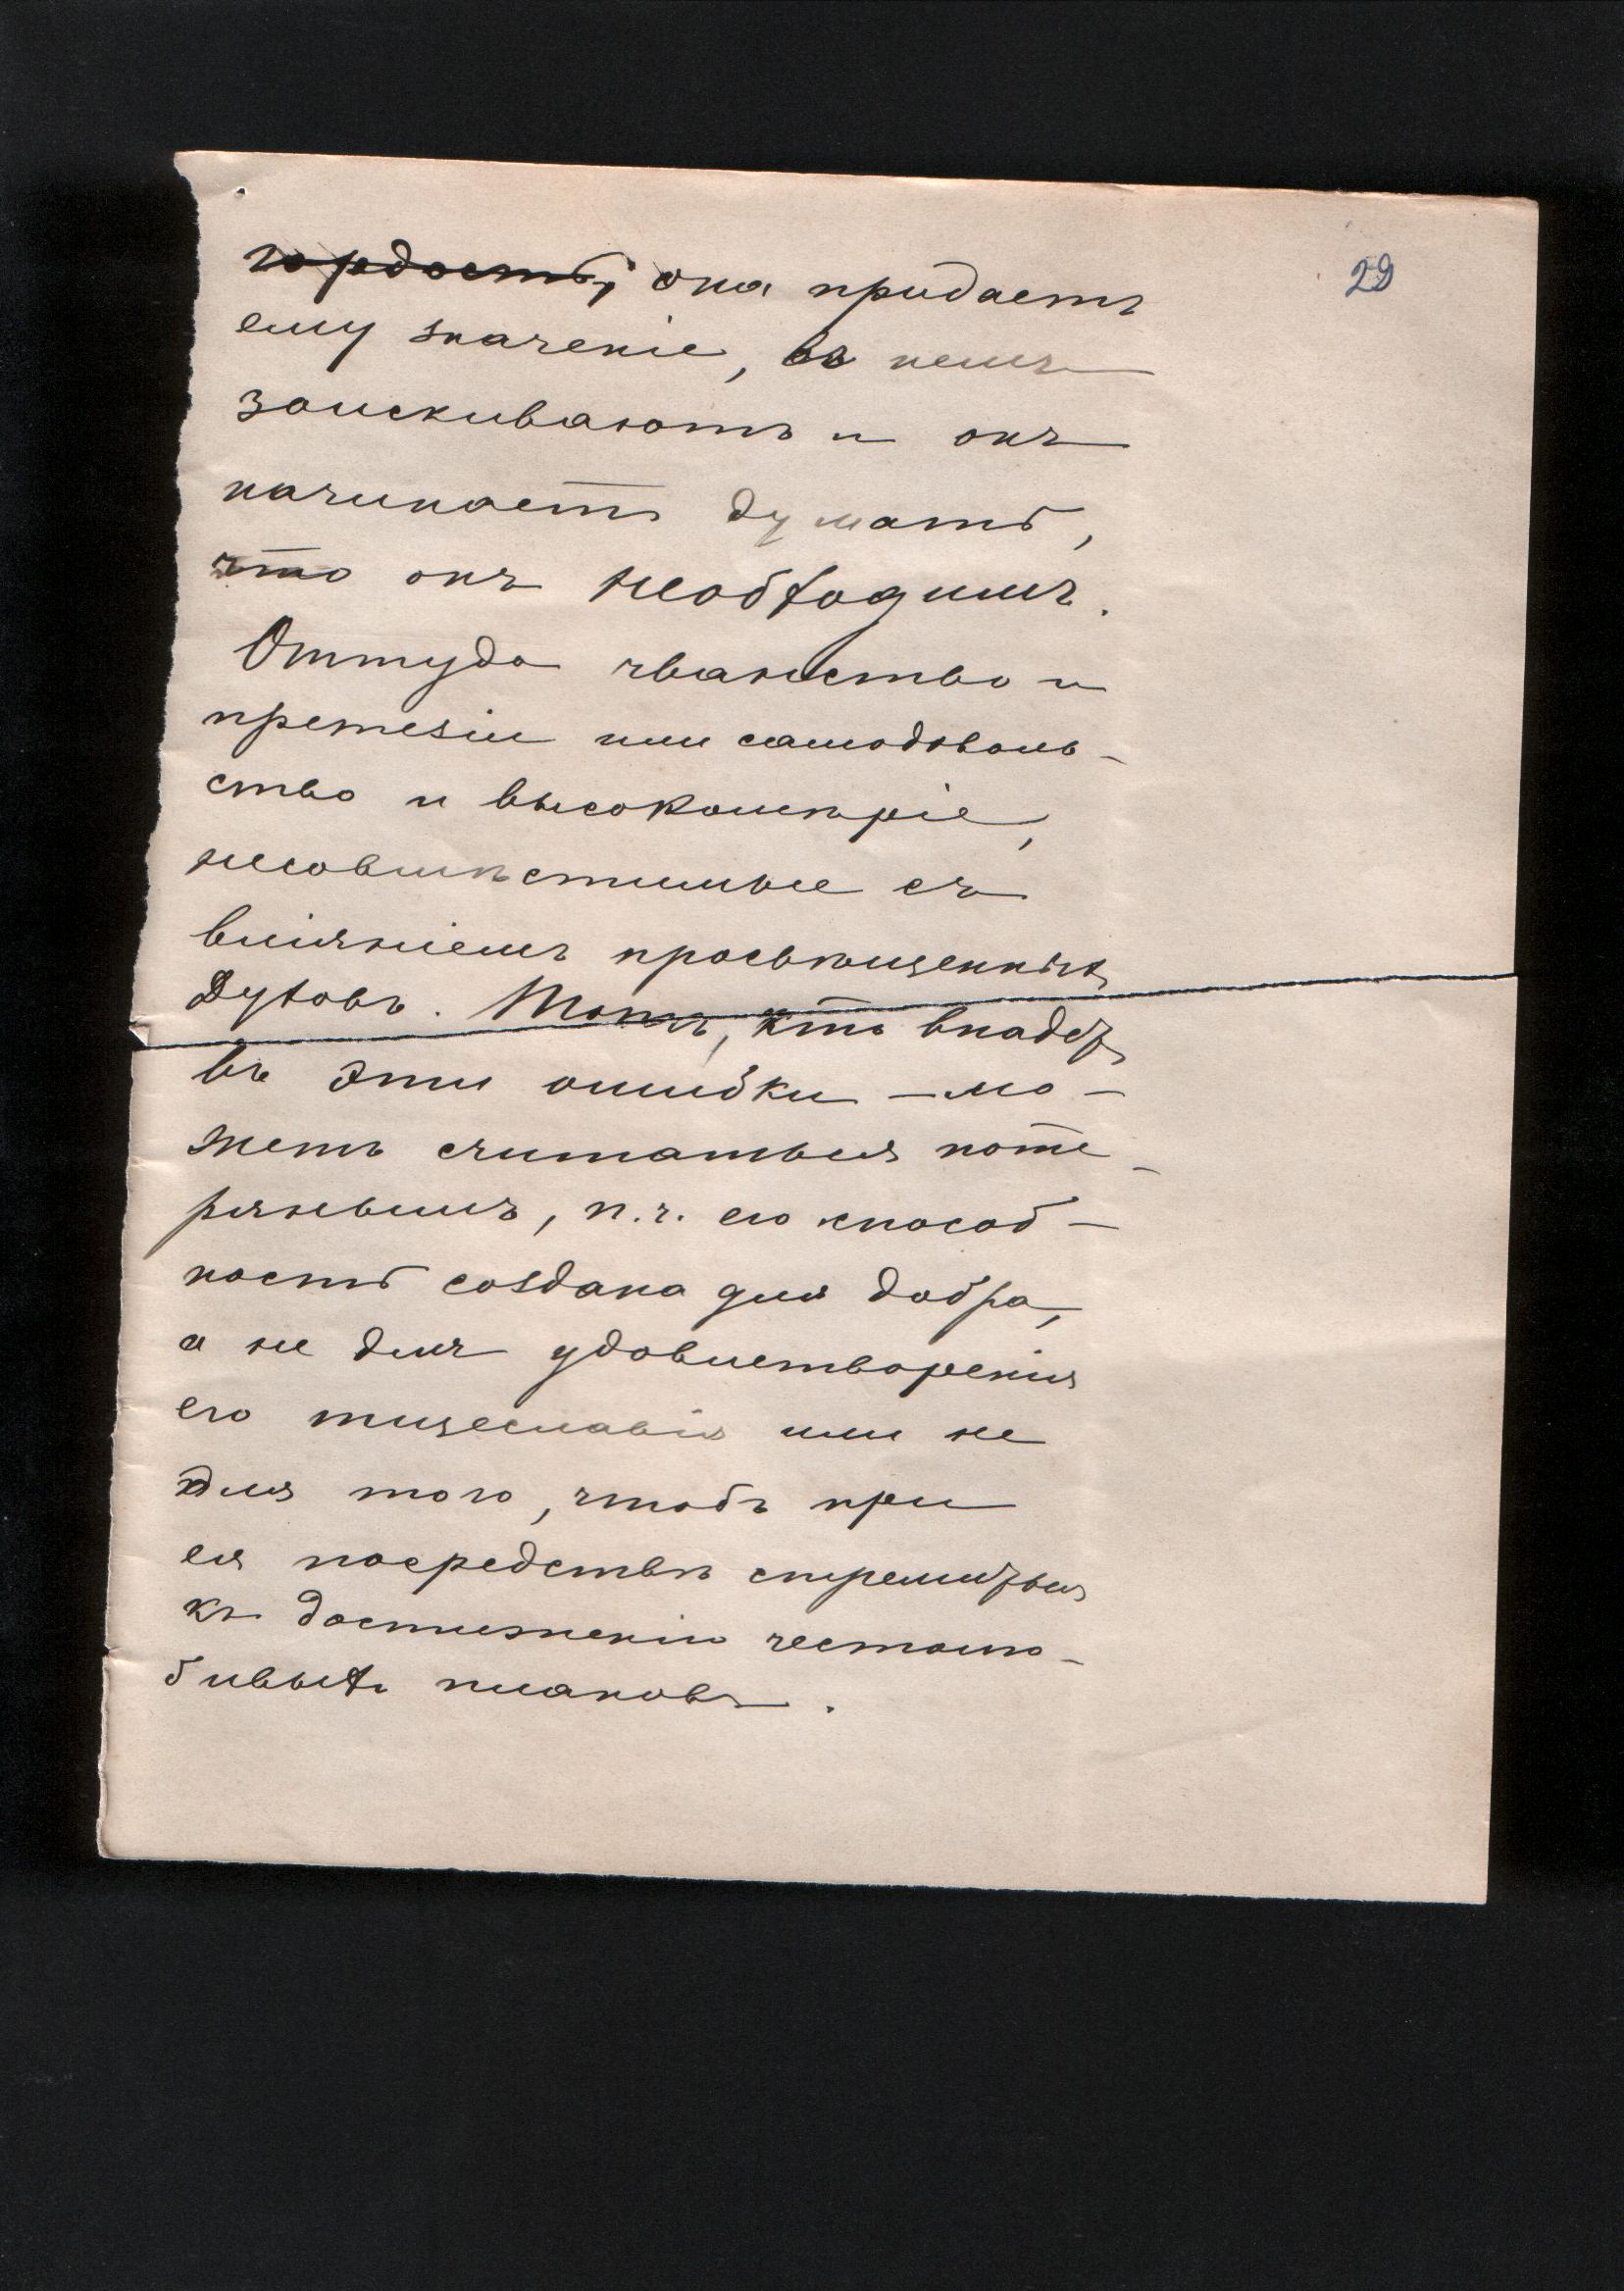 29
гордость, она придаетъ
ему значеніе, въ немъ
заискиваютъ и онъ
начинаетъ думать,
что онъ необходимъ.
Оттуда чванство и
претезіи или самодоволь-
ство и высокомѣріе,
несовмѣстимые съ
вліяніемъ просвѣщенныхъ
Духовъ. Тотъ, кто впадетъ
въ эти ошибки – мо-
жетъ считаться поте-
ряннымъ, п.ч. его способ-
ность создана для добра,
а не для удовлетворенія
его тщеславія или не
для того, чтобъ при
ея посредствѣ стремиться
къ достиженію честолю-
бивыхъ плановъ.